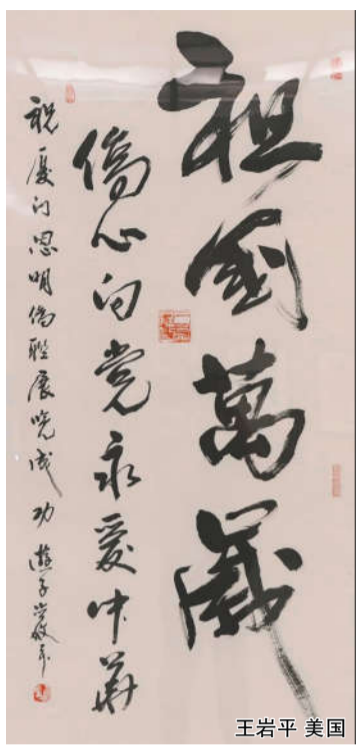 祖國萬歲
僑心向党永爱中華
祝厦门思明僑联展览成功 游子岩平
王岩平 美国